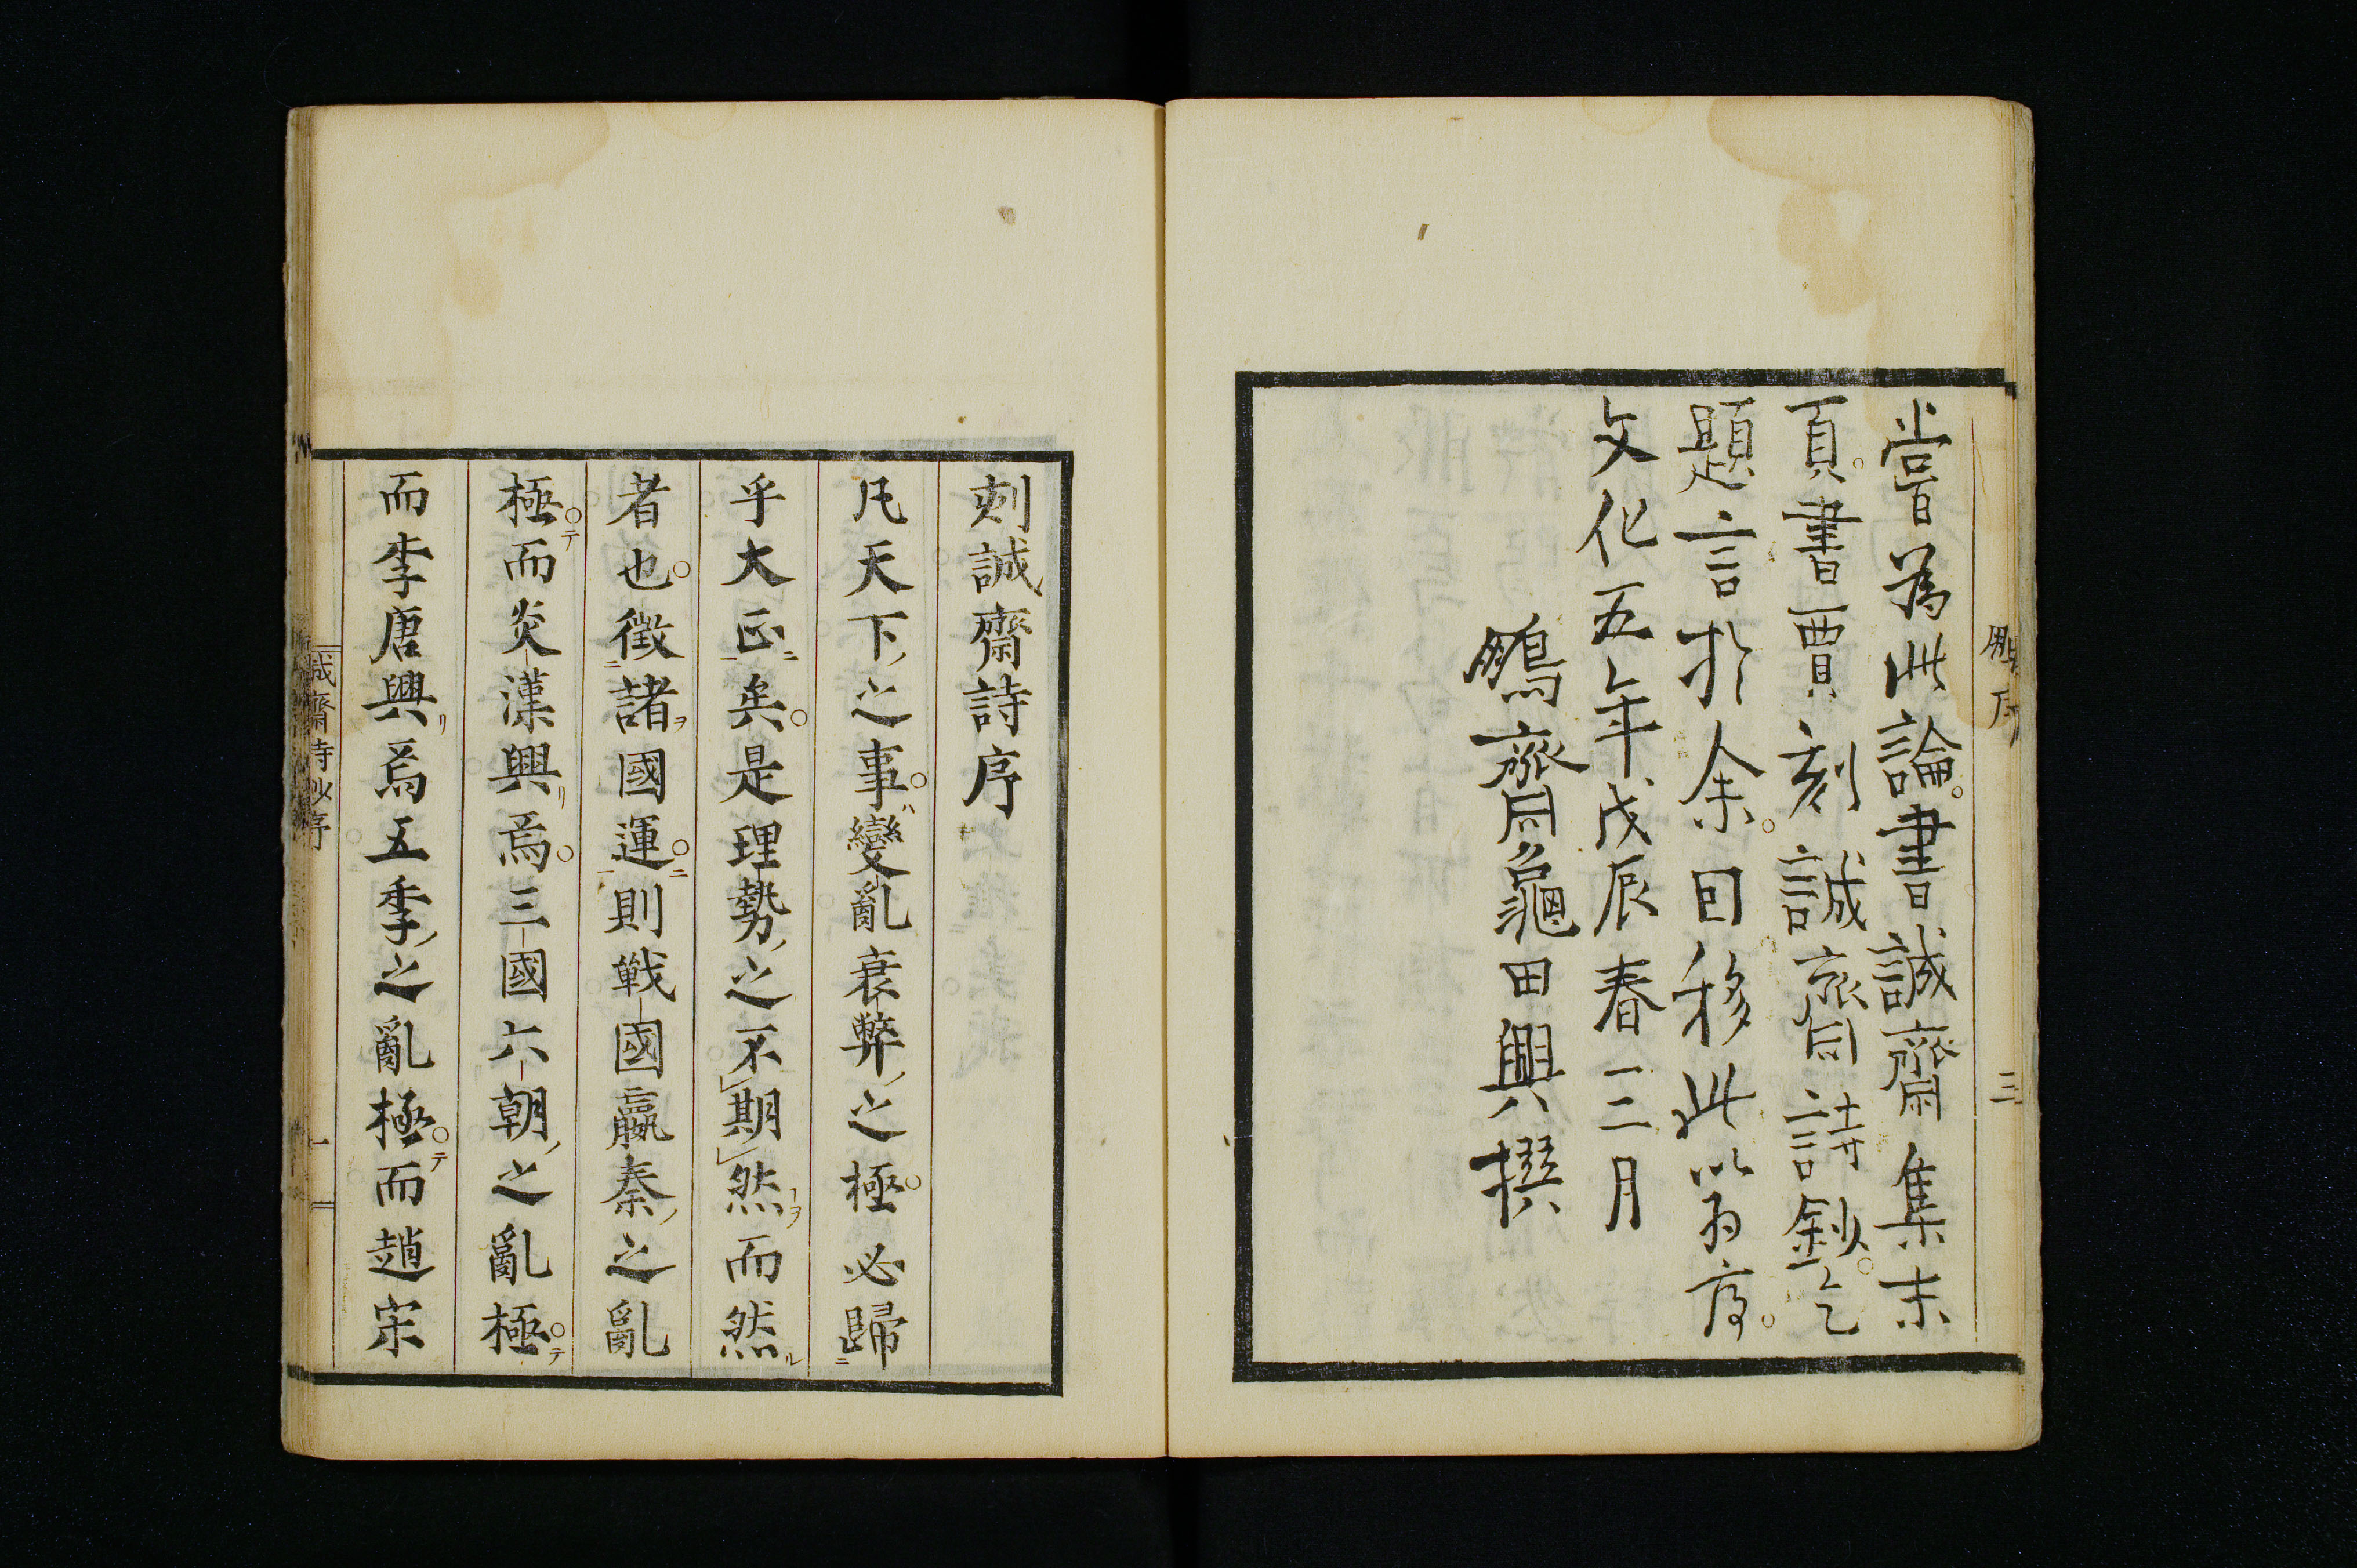 嘗為此論。書誠齋集末
頁。書賈刻誠齋詩鈔。乞
題言於余。因移此以為序。
文化五年戊辰春三月
鵬齋龜田興撰
鵬序
三
刻誠齋詩序
凡天下ノ之事。變亂衰弊ノ之極。必歸ニ
乎大正ニ矣。是理勢ノ之不期然而然ル
者也。徵諸ヲ國運ニ。則戰國嬴秦ノ之亂
極テ。而炎漢興リ焉。三國六朝ノ之亂極テ。
而李唐興リ焉五季ノ之亂極テ。而趙宋
誠齋詩鈔序
一